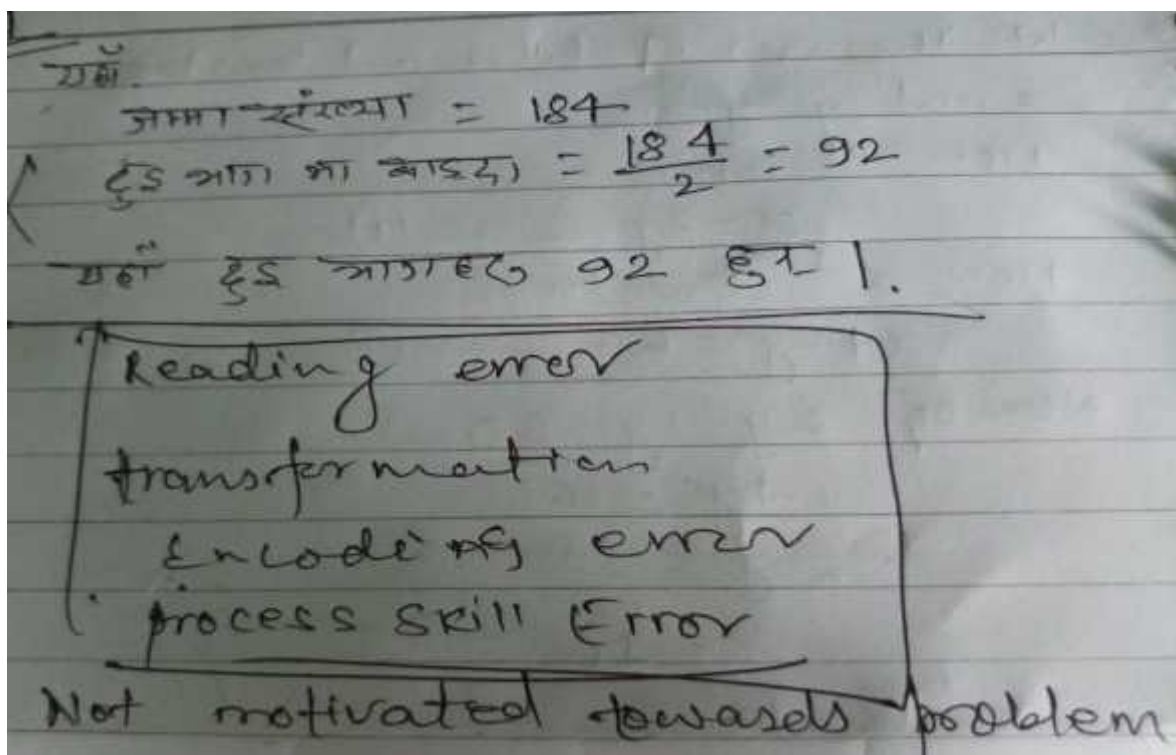 यहाँ.
जम्मा संख्या = 184
दुइ भाग मा बाड्दा = 184/2 = 92
यहाँ दुइ भागहरु 92 हुन् ।.
Reading error
transformation
Encoding error
process skill Error
Not motivated towards problem